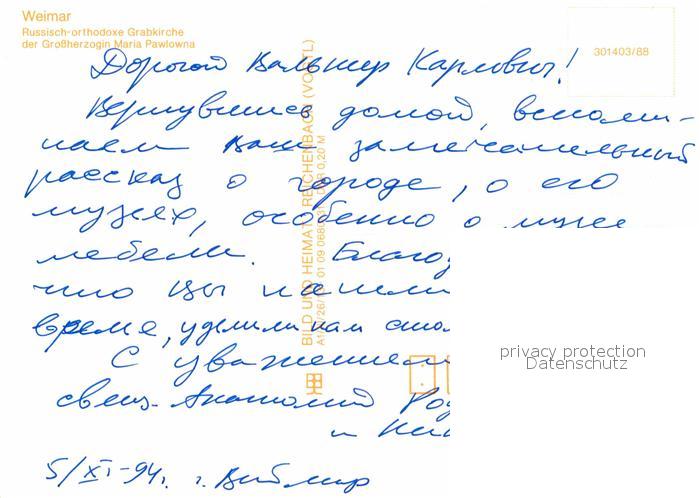 Weimar
Russisch-orthodoxe Grabkirche
der Großherzogin Maria Pawlowna
301403/88
Дорогой Вальтер Карлович!
Вернувшись домой, вспоми-
наем Ваш замечательный
рассказ о городе, о его
музеях, особенно о музее
мебели. Благод
что Вы нашли
время, уделили нам
С уважением
Анатолий Род
и
5/XI-94г. г. Веймар
BILD UND HEIMAT REICHENBACH (VOGTL)
privacy protection
Datenschutz